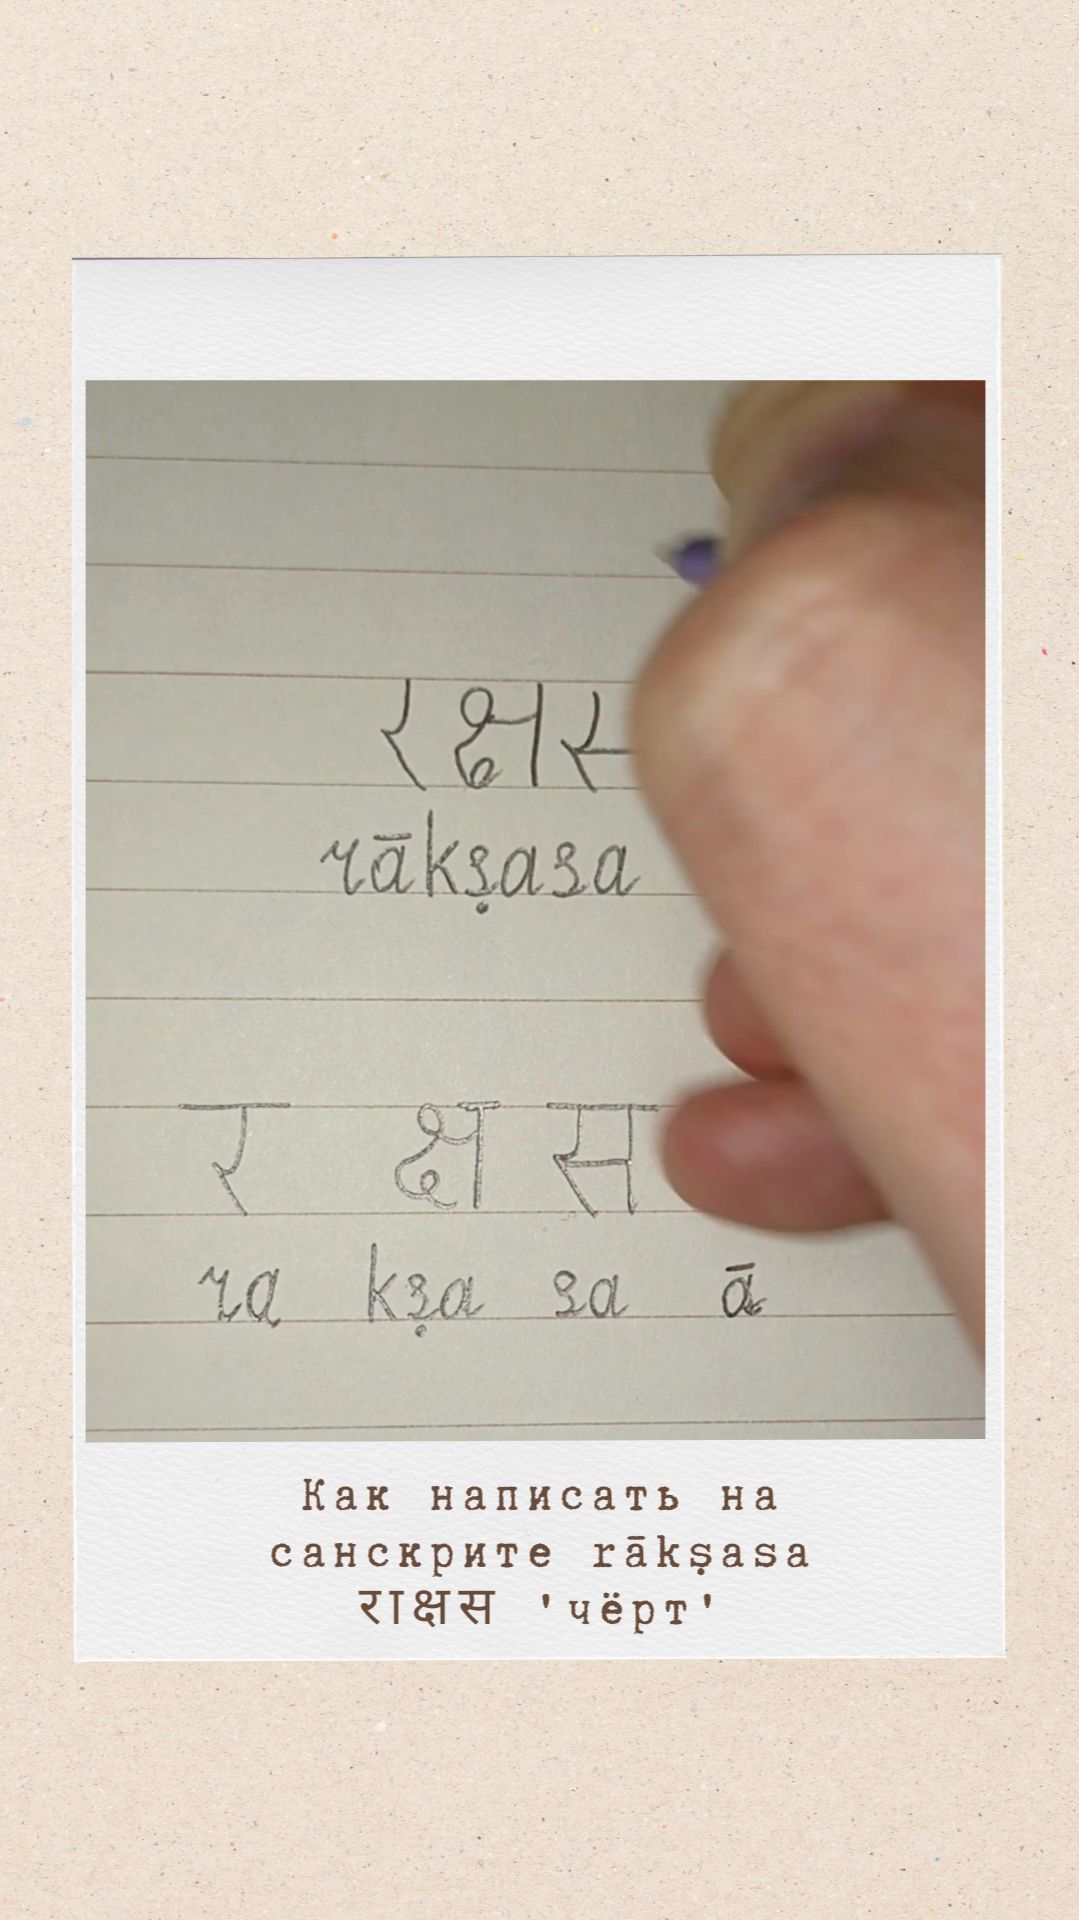 रक्षस
rākṣasa
र क्ष स
ra kṣa sa ā
Как написать на
санскрите rākṣasa
राक्षस 'чёрт'